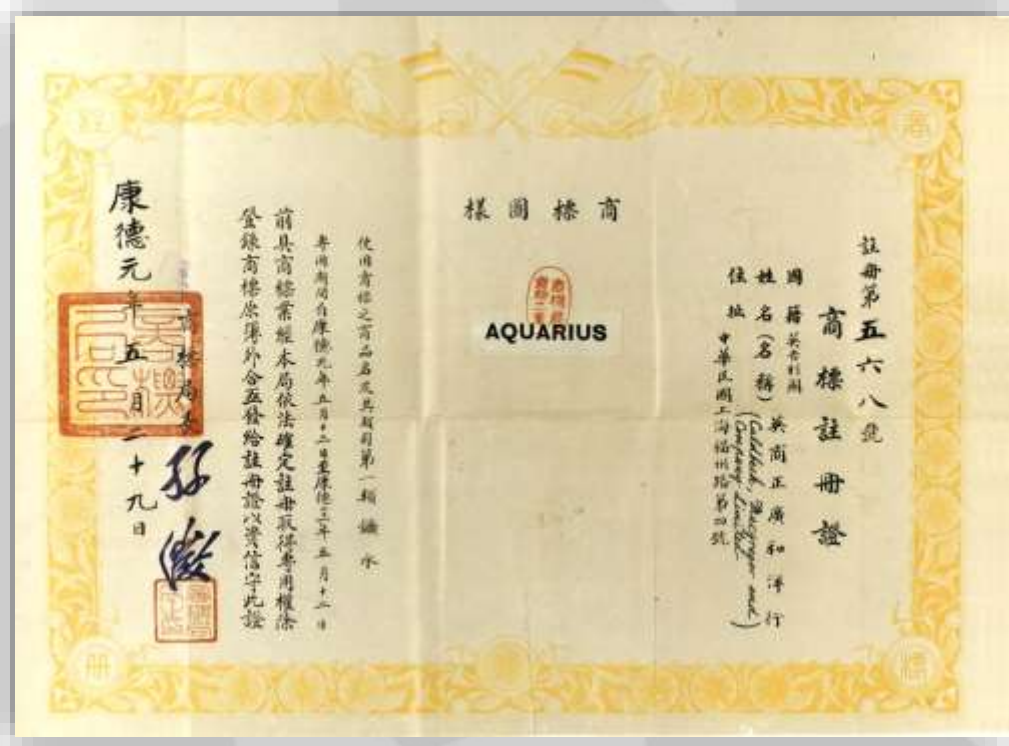 註冊第五六八號
商標註冊證
國籍 英吉利國
姓名(名稱) 英商正廣和洋行
(Caldbeck, Macgregor and
Company Limited.)
住址 中華民國上海福州路第 號
商標圖樣
AQUARIUS
使用商標之商品名及其類別第一類 鑛水
專用期間自康德元年五月十二日至康德 年五月十二日
前具商標業經本局依法確定註冊取得專用權除
登錄商標原簿外合亟發給註冊證以資信守此證
康德元年五月二十九日
商標局長
孫澂